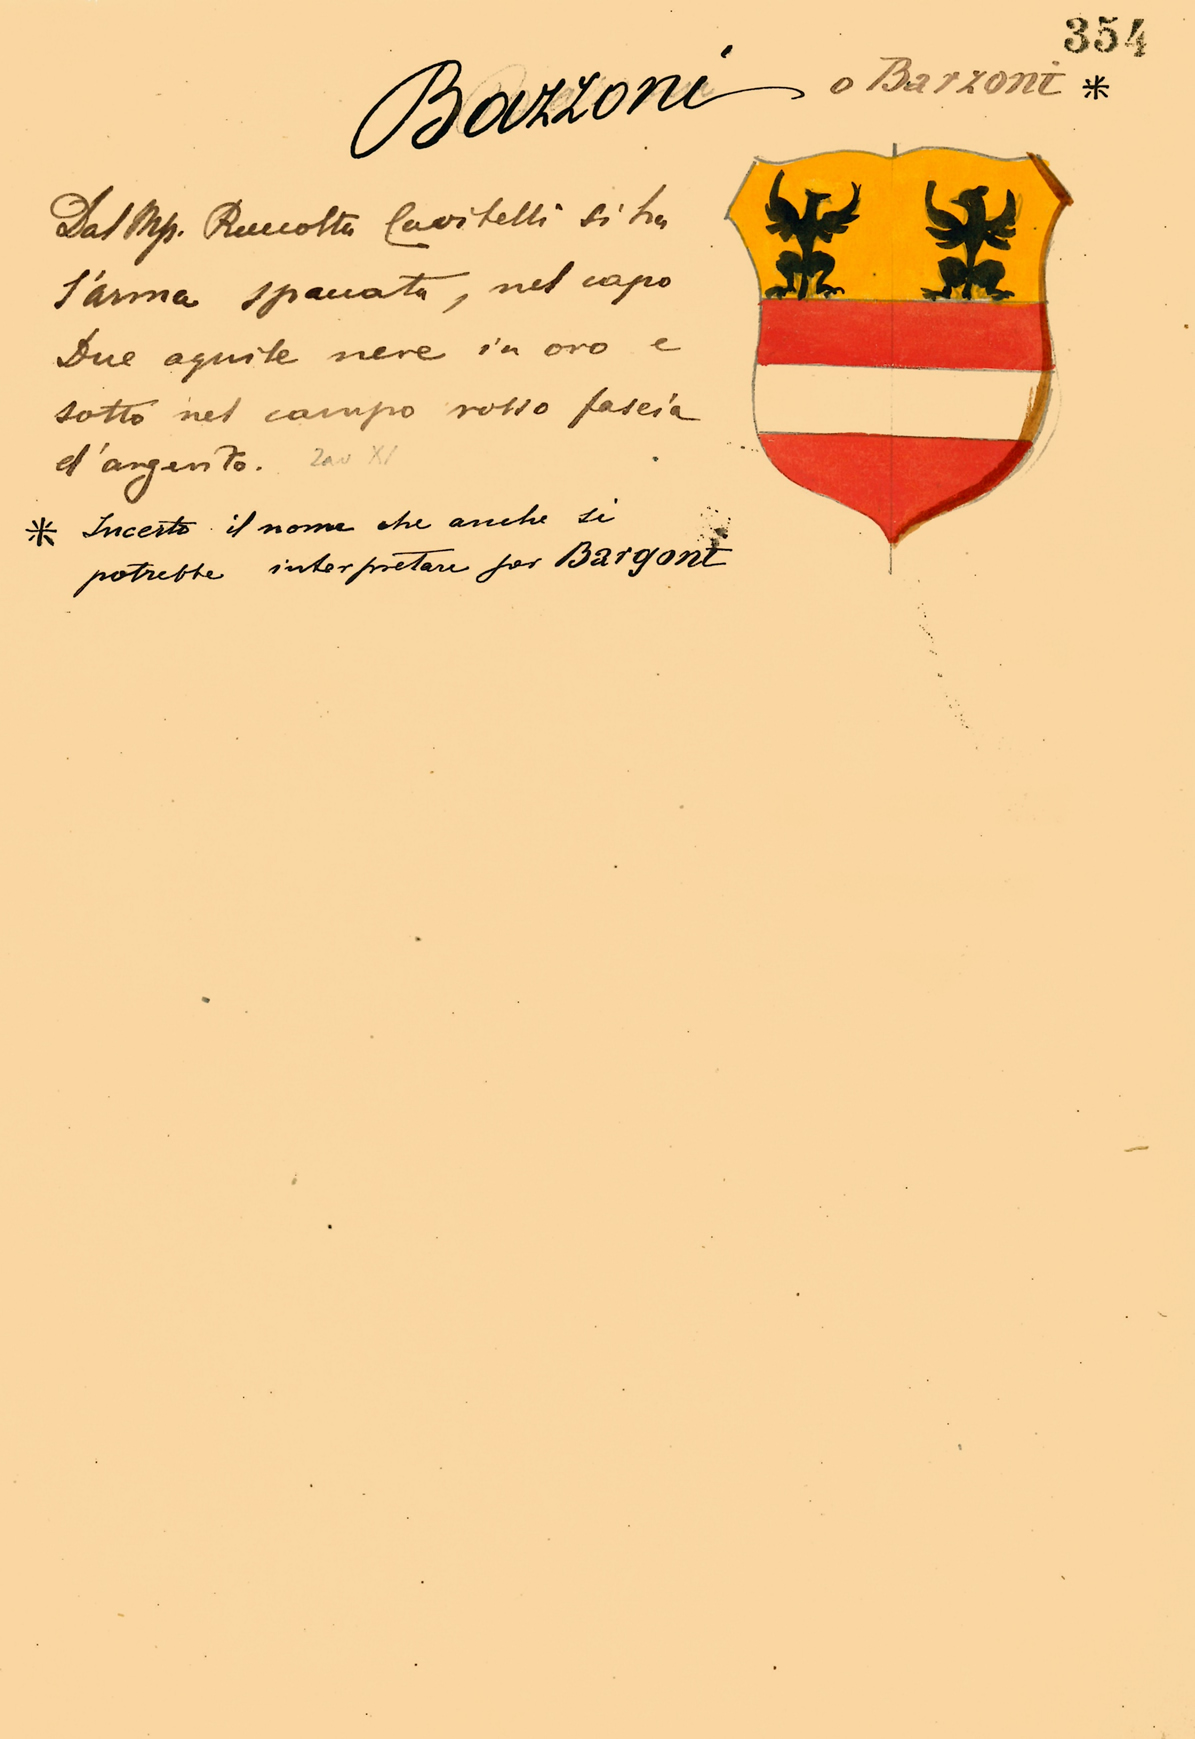 354
Bazzoni o Barzoni *
Dal Mp. Raccolta Cavitelli si ha
l'arma spaccata, nel capo
Due aquile nere in oro e
sotto nel campo rosso fascia
d'argento. Tav XI
* Incerto il nome che anche si
potrebbe interpretare per Bargoni